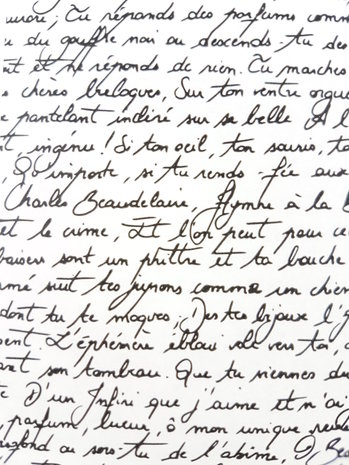 aurore, Tu répands des parfums comm
du gouffre noir ou descends-tu des
nt et ne réponds de rien. Tu marches
chères breloques, Sur ton ventre orgue
pantelant incliné sur sa belle A l
t, ingénu! Si ton oeil, ton souris, to
, Qu'importe, si tu rends - fée aux
Charles Beaudelaire, Hymne à la
et le crime, Et l'on peut pour ce
baisers sont un philtre et ta bouche
rmé suit tes jupons comme un chien
dont tu te moques; Des tes bijoux l'
ent. L'éphémère ébloui vole vers toi,
ant son tombeau. Que tu viennes du
D'un Infini que j'aime et n'ai
, parfum, lueur, ô mon unique
ou sors-tu de l'abime, Ô, Bea